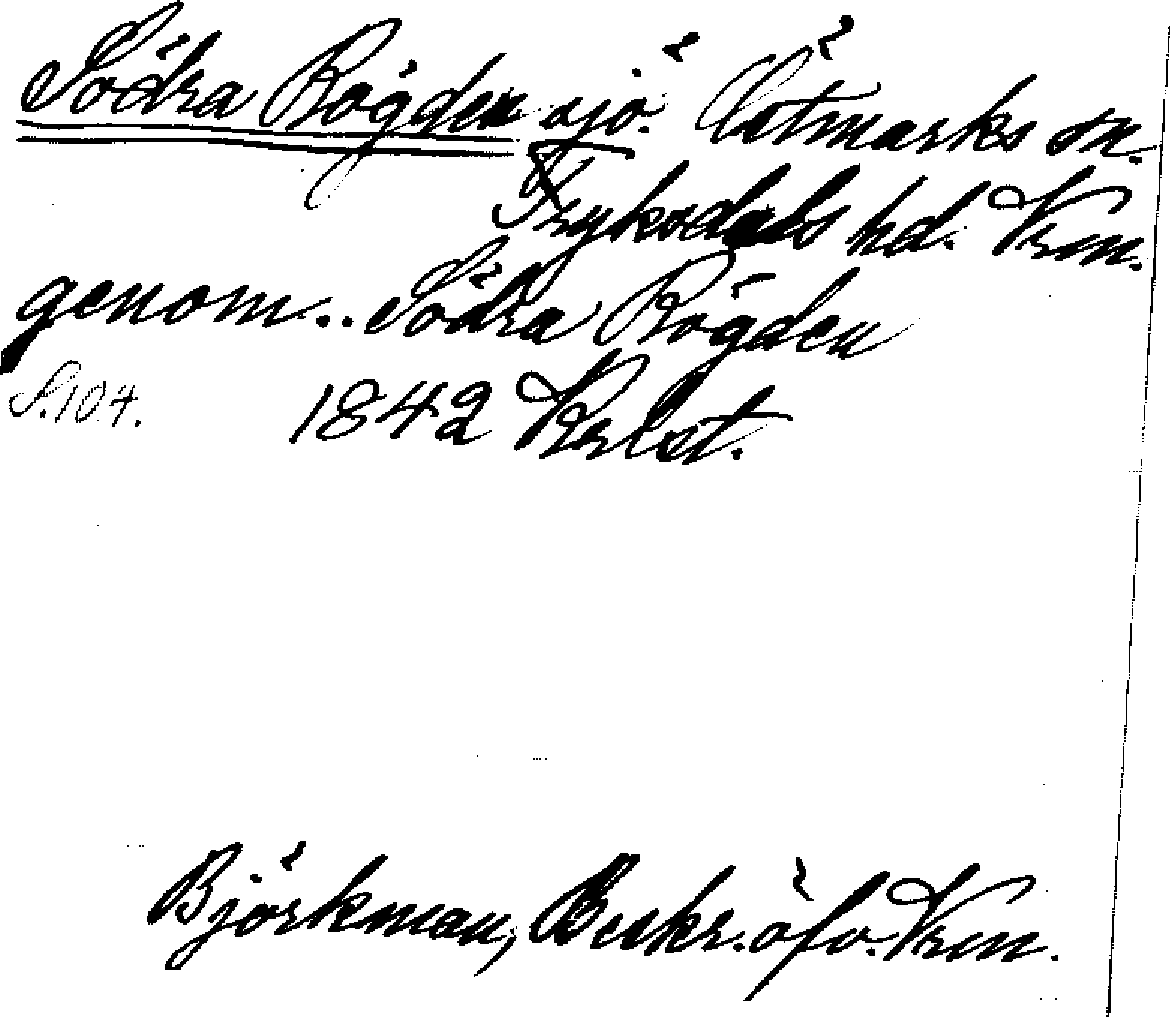 Södra Rögden sjö. Östmarks sn.
Fryksdals hd. Vrm.
genom.. Södra Rögden
S. 104. 1842 Krlst.
Björkman, Beskr. öfv. Vrm.